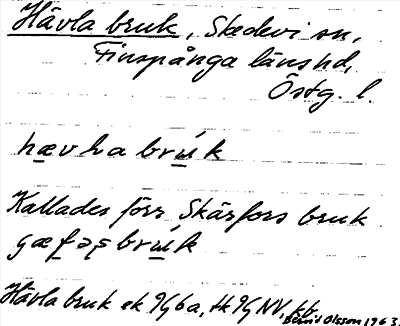 Hävla bruk, Skedevi sn,
Finspånga läns hd,
Östg. l.
hævla brúk
Kallades förr Skärfors bruk
brúk
Hävla bruk ek 9G 6a, tk 9G NV, kb.
Bernt Olsson 1963